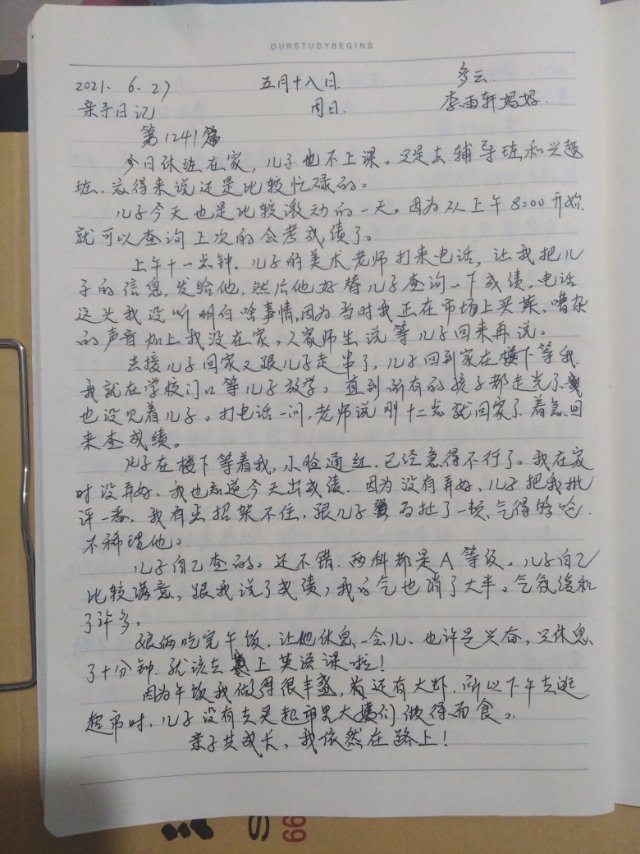 OURSTUDYBEGINS
2021. 6. 27 五月十八日 多云.
亲子日记 周日. 李雨轩妈妈.
第1241篇
今日休班在家, 儿子也不上课。又是去辅导班和兴趣
班. 总得来说还是比较忙碌的。
儿子今天也是比较激动的一天。因为从上午8:00开始.
就可以查询上次的会考成绩了。
上午十一点钟, 儿子的美术老师打来电话, 让我把儿
子的信息, 发给他, 然后他好替儿子查询一下成绩. 电话
这头我没听明白啥事情, 因为当时我正在市场上买菜, 嘈杂
的声音加上我没在家, 又家师生说等儿子回来再说。
去接儿子回家又跟儿子走串了, 儿子回到家在楼下等我.
我就在学校门口等儿子放学。直到所有的孩子都走光了
也没见着儿子。打电话一问, 老师说刚十二点就回家了. 着急回
来查成绩。
儿子在楼下等着我, 小脸通红. 已经急得不行了。我在家
时没弄好, 我也知道今天出成绩. 因为没有弄好, 儿子把我批
评一番. 我有点招架不住, 跟儿子 而扯了一顿, 气得够呛.
不稀理他。
儿子自己查的. 还不错. 两科都是A等级。儿子自己
比较满意, 跟我说了成绩, 我的气也消了大半。气氛缓和
了许多。
娘俩吃完午饭, 让他休息一会儿. 也许是兴奋, 只休息
了十分钟. 就该去上英语课啦!
因为午饭我做得很丰盛, 还有大虾. 所以下午去逛
超市时, 儿子没有去买超市里大姨们做得面食。
亲子共成长, 我依然在路上!